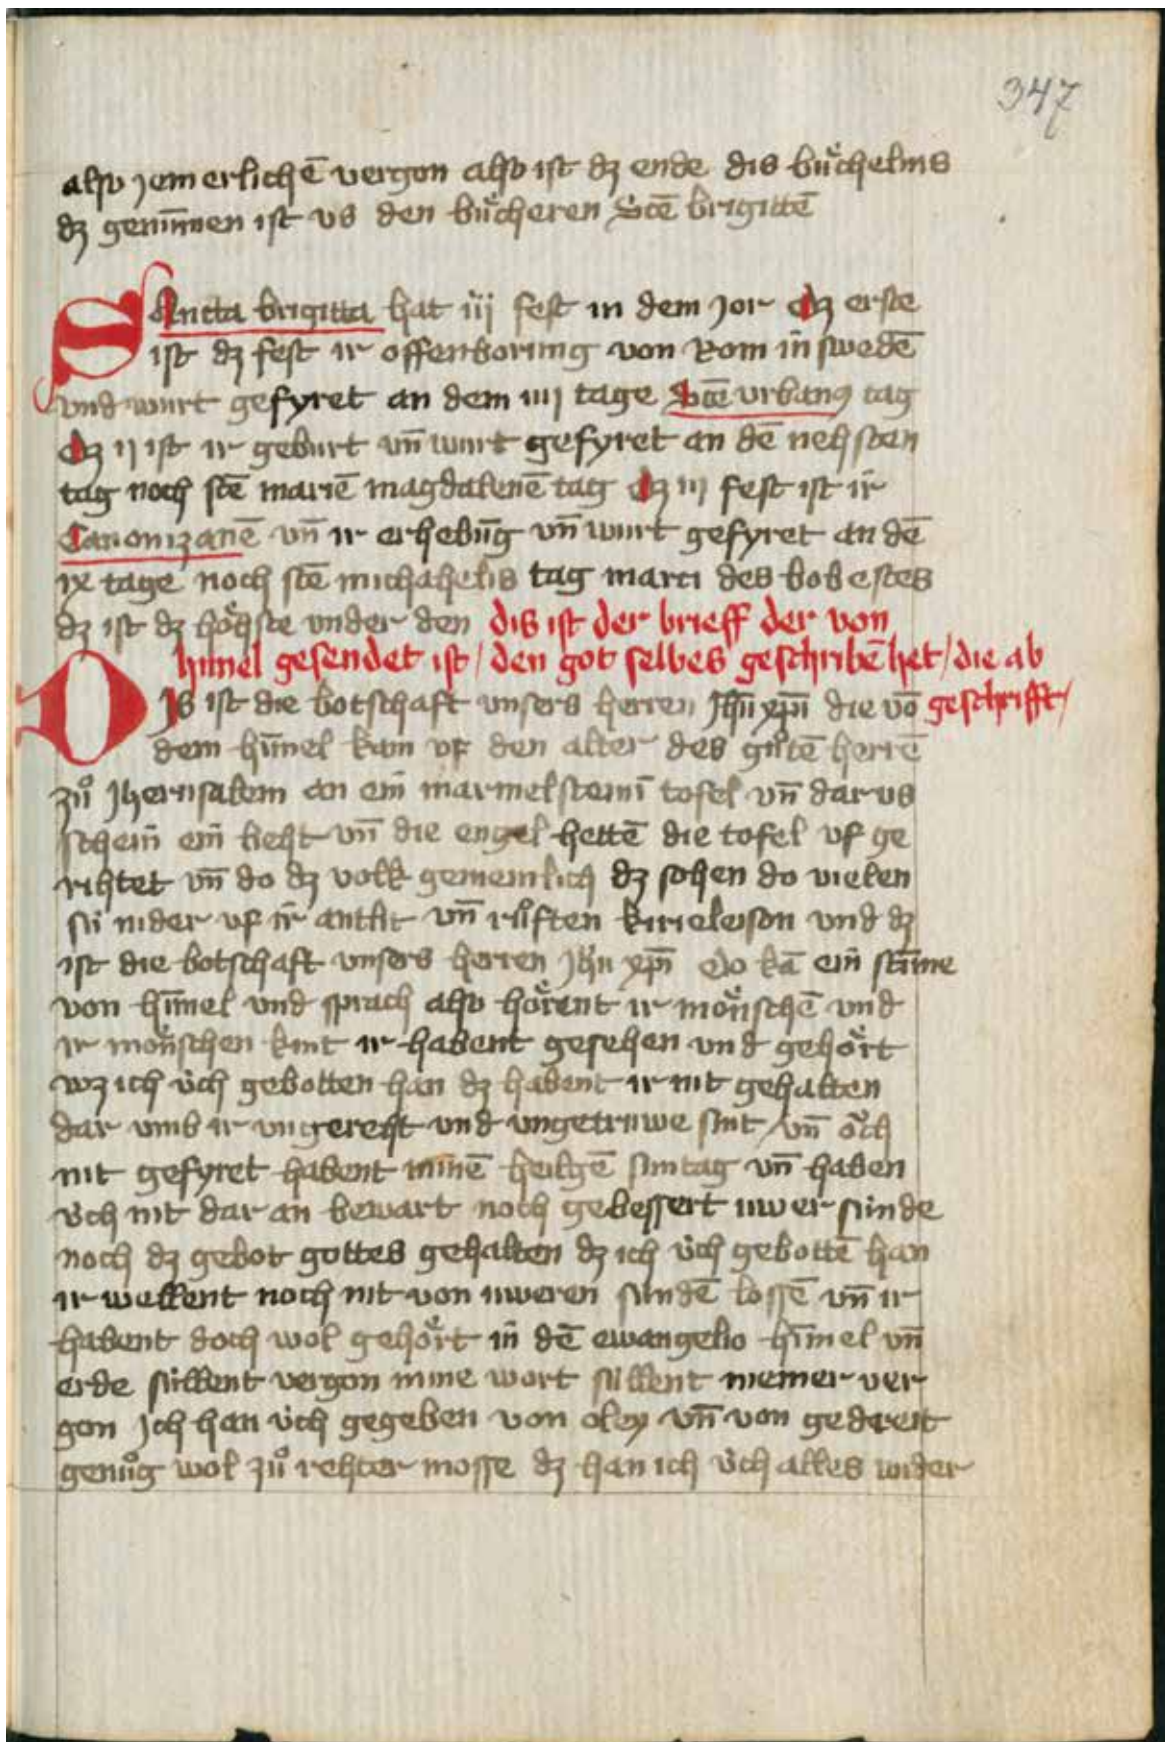 347
also jemerlichē vergon also ist dz ende dis bůchelins
dz genūmen ist vs den bůcheren Sctē brigittē
SAncta brigitta hat iij fest in dem jor Dz erste
ist dz fest ir offenborung von Rom in swedē
vnd wurt gefyret an dem iiij tage Sctē vrbanꝰ tag
Dz ij ist ir geburt vn̄ wurt gefyret an dē nehsten
tag noch sctē mariē magdalenē tag Dz iij fest ist ir
Canonizanē vn̄ ir erhebūg vn̄ wurt gefyret an dē
ix tage noch sctē michahelis tag marci des bobestes
dz ist dz höhste vnder den dis ist der brieff der von
himel gesendet ist / den got selbes geschribē het / die ab
geschrifft /
DIs ist die botschaft vnsers herren Jhū xpī die vō
dem hīmel kam vf den alter des gůtē herrē
zů Jherusalem an ein marmelsteinī tofel vn̄ dar vs
schein ein lieht vn̄ die engel hettē die tofel vf ge
rihtet vn̄ do dz volk gemeinlich dz sohen do vielen
sü nider vf ir antlit vn̄ růften kirieleison vnd dz
ist die botschaft vnsers herren Jhū xpī Do kā ein stīme
von hīmel vnd sprach also hörent ir mönschē vnd
ir mönschen kint ir habent gesehen vnd gehört
wz ich üch gebotten han dz habent ir nit gehalten
dar vmb ir vngereht vnd vngetruwe sint / vn̄ öch
nit gefyret habent minē heilgē suntag vn̄ haben
üch nit dar an bewart noch gebessert uwer sünde
noch dz gebot gottes gehalten dz ich üch gebottē han
ir wellent noch nit von uweren sündē lossē vn̄ ir
habent doch wol gehört in dē ewangelio hīmel vn̄
erde süllent vergon mine wort süllent niemer ver
gon Jch han üch gegeben von oley vn̄ von gedreit
genůg wol zů rehter mosse dz han ich üch alles wider